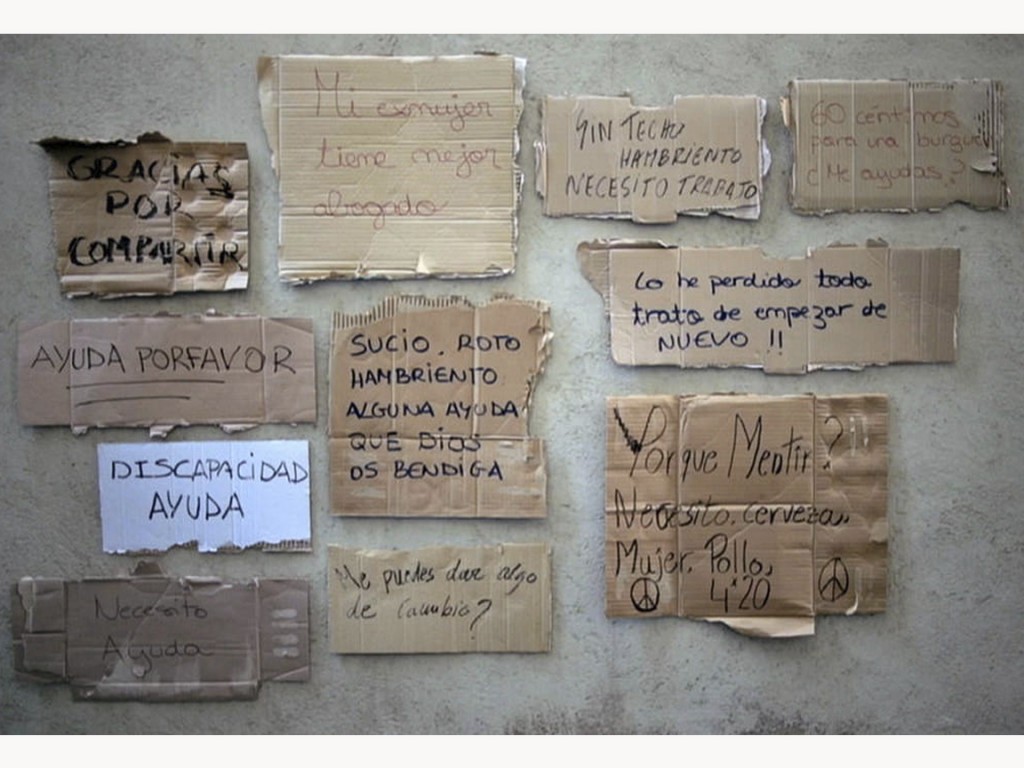 GRACIAS
POR
COMPARTIR
Mi exmujer
tiene mejor
abogado
SIN TECHO
HAMBRIENTO
NECESITO TRABAJO
60 céntimos
para una burguer
¿Me ayudas?
Lo he perdido todo
trato de empezar de
NUEVO !!
AYUDA PORFAVOR
SUCIO, ROTO
HAMBRIENTO
ALGUNA AYUDA
QUE DIOS
OS BENDIGA
DISCAPACIDAD
AYUDA
Porque Mentir?
Necesito. cerveza,
Mujer, Pollo,
4'20
Necesito
Ayuda
Me puedes dar algo
de Cambio?